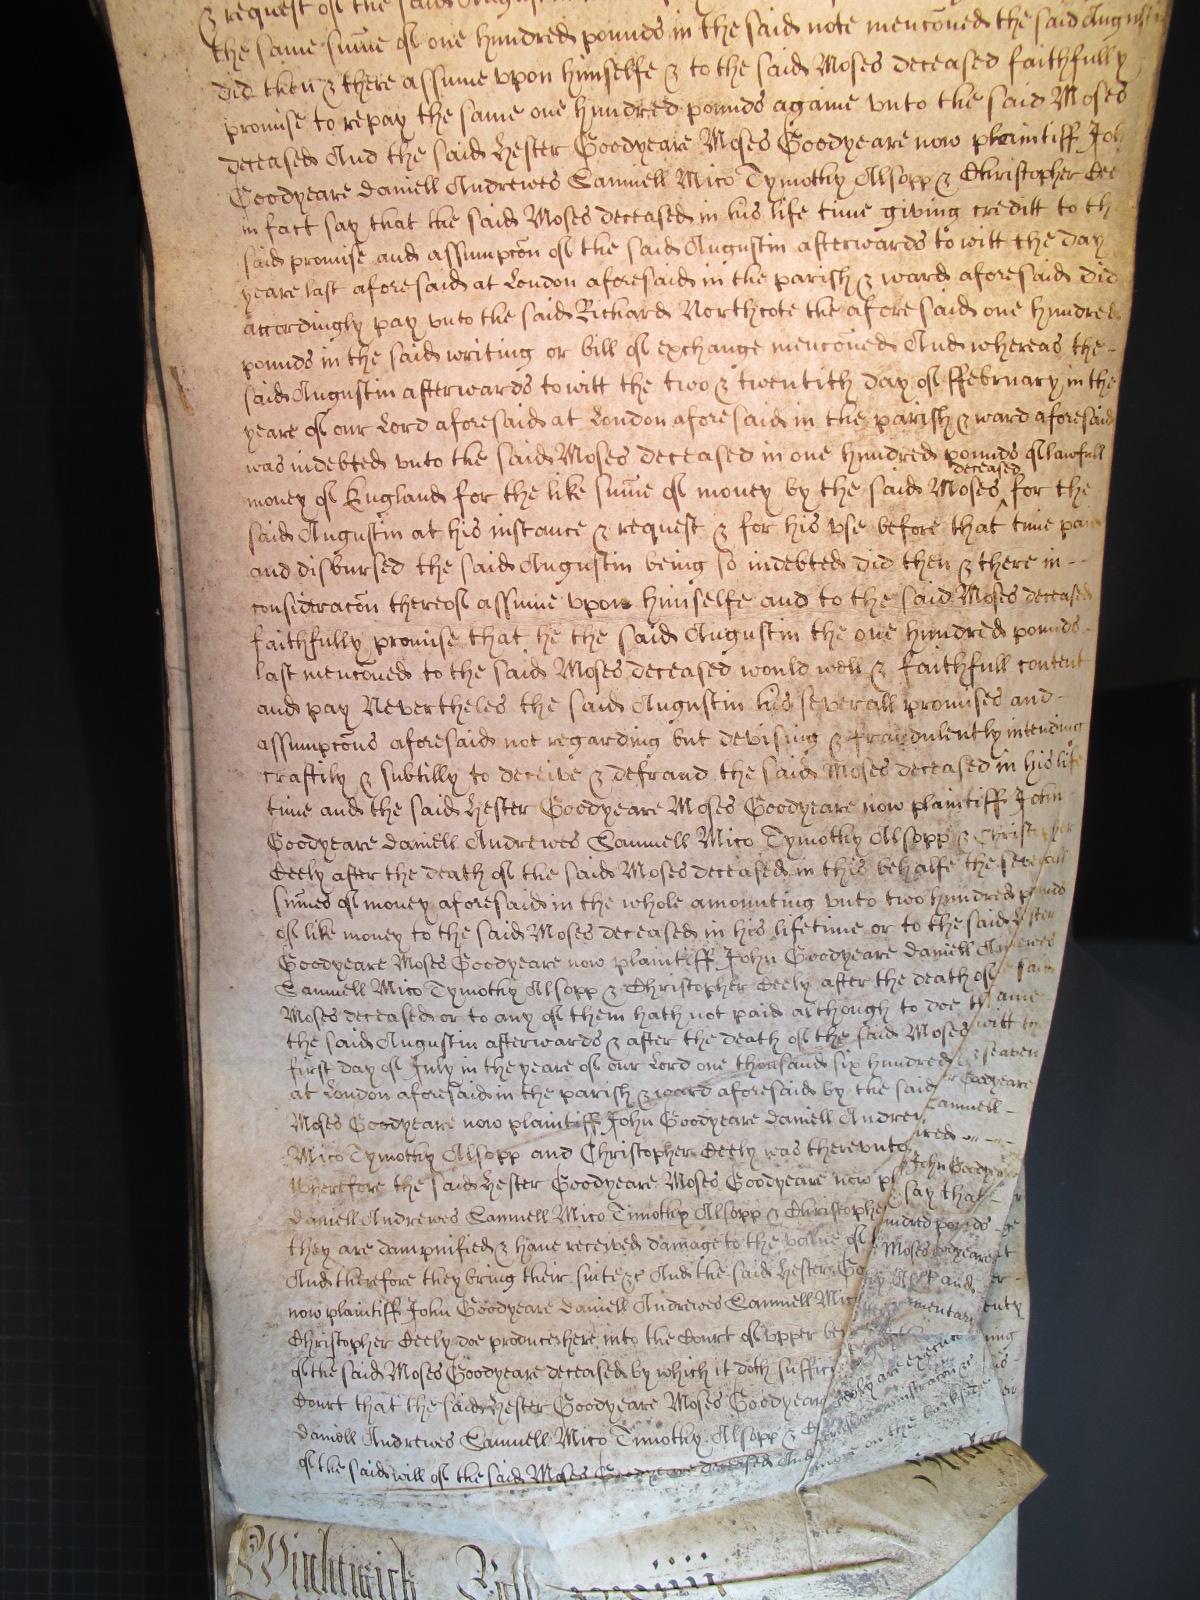 & request of the said Augustin
the same sūme of one hundred pounds in the said note menc̄oned the said Augustin
did then & there assume vpon himselfe & to the said Moses deceased faithfully
promise to repay the same one hundred pounds againe vnto the said Moses
deceased And the said Hester Goodyeare Moses Goodyeare now plaintiff Joh
Goodyeare Daniell Andrewes Samuell Mico Tymothy Alsopp & Christopher Cee
in fact say that the said Moses deceased in his life time giving creditt to th
said promise and assumpc̄on of the said Augustin afterwards to witt the day
yeare last aforesaid at London aforesaid in the parish & ward aforesaid did
accordingly pay vnto the said Richard Northcote the aforesaid one hundred
pounds in the said writing or bill of exchange menc̄oned And whereas the -
said Augustin afterwards to witt the two & twentith day of ffebruary in the
yeare of our Lord aforesaid at London aforesaid in the parish & ward aforesaid
was indebted vnto the said Moses deceased in one hundred pounds of lawfull
money of England for the like sūme of money by the said Moses ^deceased for the
said Augustin at his instance & request & for his vse before that time pai
and disbursed the said Augustin being so indebted did then & there in - -
considerac̄on thereof assume vpon himselfe and to the said Moses deceased
faithfully promise that he the said Augustin the one hundred pounds -
last menc̄oned to the said Moses deceased would well & faithfull content
and pay Nevertheles the said Augustin his severall promises and -
assumpc̄ons aforesaid not regarding but devising & fraudulently intending
craftily & subtilly to deceive & defraud the said Moses deceased in his life
time and the said Hester Goodyeare Moses Goodyeare now plaintiff John
Goodyeare Daniell Andrewes Samuell Mico Tymothy Alsopp & Christopher
Ceely after the death of the said Moses deceased in this behalfe the severall
sūmes of money aforesaid in the whole amounting vnto two hundred pounds
of like money to the said Moses deceased in his lifetime or to the said Hester
Goodyeare Moses Goodyeare now plaintiff John Goodyeare Daniell Andrewes
Samuell Mico Tymothy Alsopp & Christopher Ceely after the death of said
Moses deceased or to any of them hath not paid although to doe th ame
the said Augustin afterwards & after the death of the said Moses witt
first day of July in the yeare of our Lord one thousand six hundred & seaven
at London aforesaid in the parish & ward aforesaid by the said Goodyeare
Moses Goodyeare now plaintiff John Goodyeare Daniell Andrew Samuell -
Mico Tymothy Alsopp and Christopher Ceely was therevnto ired
Wherefore the said Hester Goodyeare Moses Goodyeare now pl John Goody
Daniell Andrewes Samuell Mico Timothy Alsopp & Christophe say that
they are dampnified & haue received damage to the value of undred pounds
And therefore they bring their suite &c And the said Hester Go Moses
now plaintiff John Goodyeare Daniell Andrewes Samuell Mic and
Christopher Ceely doe produce here into the Court of vpper be
of the said Moses Goodyeare deceased by which it doth suffic
Court that the said Hester Goodyeare Moses Goodyear Ceely are execut
Daniell Andrewes Samuell Mico Timothy Alsopp & administrac̄on &c
of the said will of the said Moses Goodyeare deceased And more on the backside